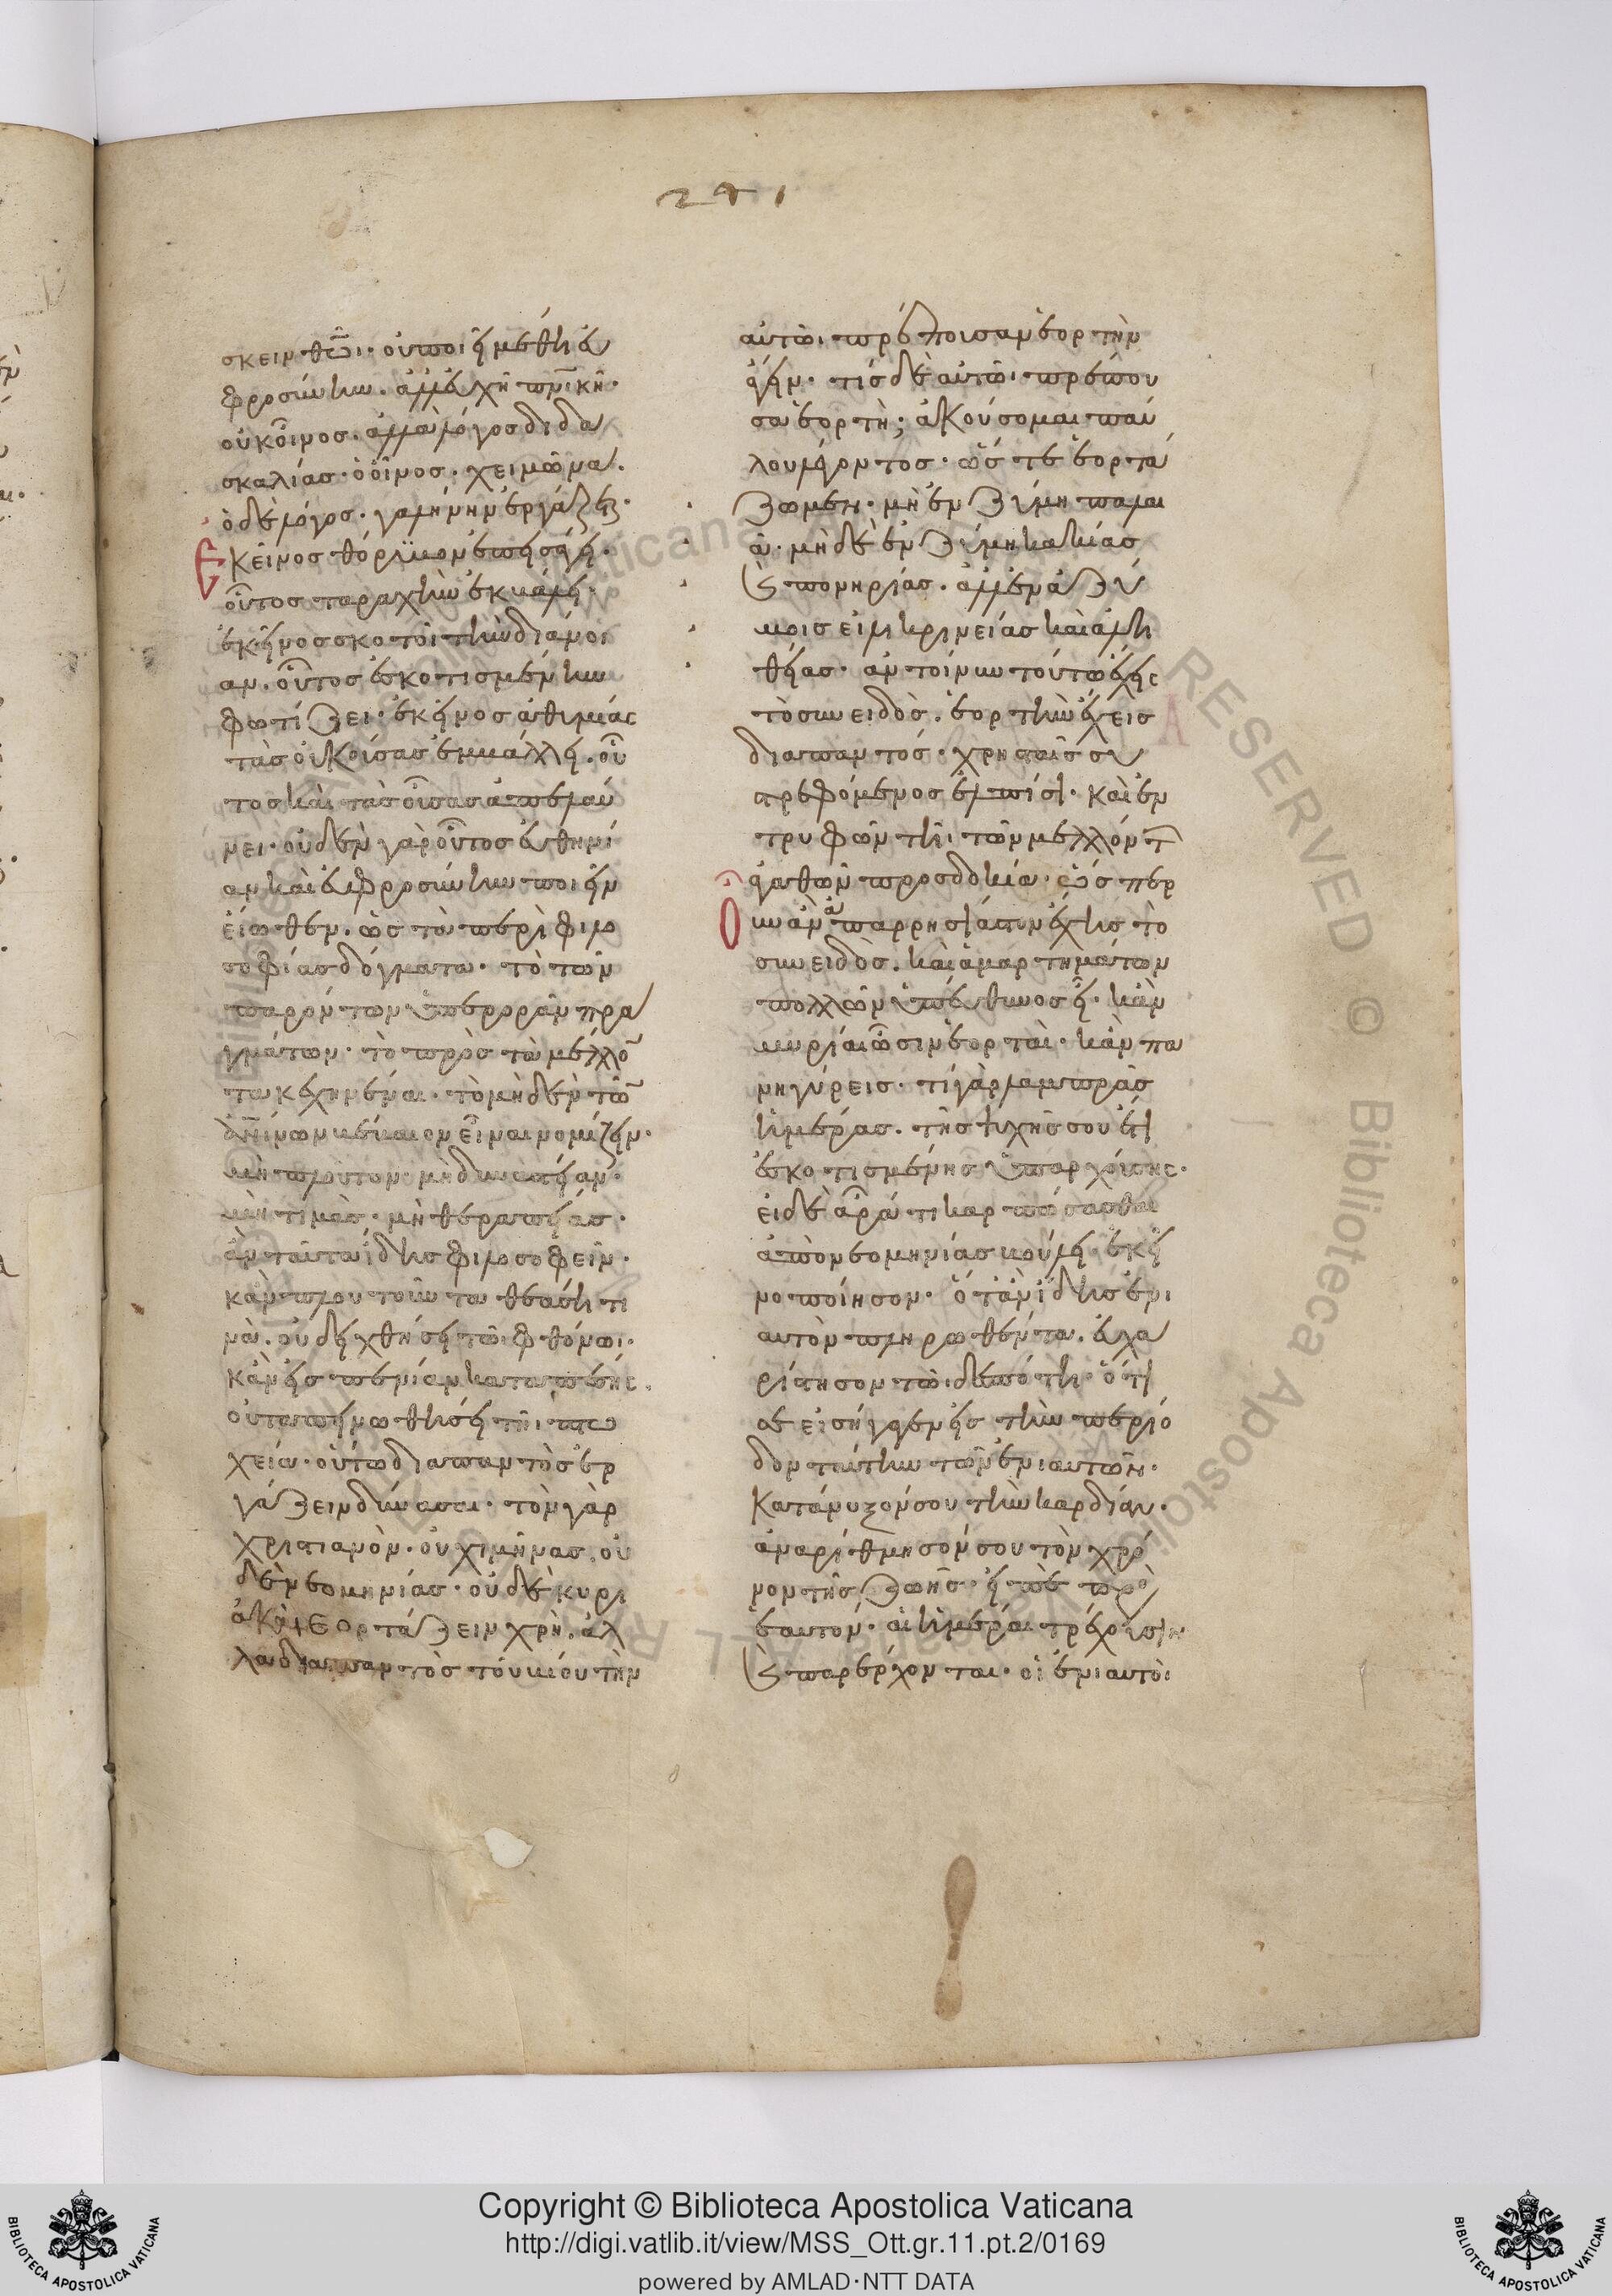 271
σκειν θῶι· οὐ ποιεῖ μέθη εὐ
φροσύνην· ἀλλ' εὐχὴ πν̅ικὴ·
οὐκ οἶνος· ἀλλὰ λόγος διδα
σκαλίας· ὁ οἶνος· χειμῶνα·
ὁ δὲ λόγος· γαλήνην ἐργάζεται·
Ἐκεῖνος θόρυβον ἐπεισάγει·
οὗτος ταραχὴν ἐκβάλλει·
ἐκεῖνος σκοτοῖ τὴν διάνοι
αν· οὗτος ἐσκοτισμένην
φωτίζει· ἐκεῖνος ἀθυμίας
τὰς οὐκ οὔσας ἐμβάλλει· οὗ
τος καὶ τὰς οὔσας ἀπελαύ
νει· οὐδὲν γὰρ οὕτως εὐθυμί
αν καὶ εὐφροσύνην ποιεῖν
εἴωθεν· ὡς τὰ περὶ φιλο
σοφίας δόγματα· τὸ τῶν
παρόντων ὑπερορᾶν πρα
γμάτων· τὸ πρὸς τὰ μέλλο
τα κεχηνέναι· τὸ μηδὲν τῶ
ἀν̅ίνων βέβαιον εἶναι νομίζειν·
μὴ πλοῦτον· μὴ δυναστείαν·
μὴ τιμὰς· μὴ θεραπείας·
ἂν ταῦτα ἴδηις φιλοσοφεῖν·
κὰν πλουτοῦντα θεάσηι τι
νὰ· οὐ δηχθήσει τῶι φθόνωι·
κὰν εἰς πενίαν καταπέσηις·
οὐ ταπεινωθήσει τῆι πτω
χεία· οὕτω διαπαντὸς ἑορ
τάζειν δύνασαι· τὸν γὰρ
χριστιανὸν· οὐχὶ μῆνας· οὐ
δὲ νεομηνίας· οὐδὲ κυρι
ακὰς ἑορτάζειν χρὴ· ἀλ
λὰ διαπαντὸς τοῦ βίου τὴν
αὐτῶι πρέπουσαν ἑορτὴν
ἄγειν· τίς δὲ αὐτῶι πρέπου
σα ἑορτὴ; ἀκούσομαι παύ
λου λέγοντος· ὥστε ἑορτά
ζωμεν· μὴ ἐν ζύμη παλαι
ᾶ· μὴ δὲ ἐν ζύμη κακίας
καὶ πονηρίας· ἀλλ' ἐν ἀζύ
μοις εἰλικρινείας καὶ ἀλη
θείας· ἂν τοίνυν τοῦτο ἔχηις
τὸ συνειδὸς· ἑορτὴν ἔχεις
διαπαντός· χρησταῖς συν
τρεφόμενος ἐλπίσι· καὶ ἐν
τρυφῶν τῆι τῶν μελλόντ
ἀγαθῶν προσδοκία· ὥσπερ
οὖν ἂν παρρησίαν μὴ ἔχηις τὸ
συνειδὸς· καὶ ἁμαρτημάτων
πολλῶν ὑπεύθυνος ἧι· κὰν
μυρίαι ὦσιν ἑορταὶ· κὰν πα
νηγύρεις· τί γὰρ λαμπρᾶς
ἡμέρας· τῆς ψυχῆς σου ἔτι
ἐσκοτισμένης ὑπαρχούσης·
εἰ δὲ ἄρα τι καρπώσασθαι
ἀπὸ νεομηνίας βούλει· ἐκεῖ
νο ποίησον· ὅταν ἴδηις ἐνι
αυτὸν πληρωθέντα· εὐχα
ρίστησον τῶι δεσπότηι· ὅτι
σε εἰσήγαγεν εἰς τὴν περίο
δον ταύτην τῶν ἐνιαυτῶν·
Κατάνυξόν σου τὴν καρδίαν·
ἀναρίθμησόν σου τὸν χρό
νον τῆς ζωῆς· εἰπὲ πρὸς
ἑαυτόν· αἱ ἡμέραι τρέχουσιν
καὶ παρέρχονται· οἱ ἐνιαυτοὶ
Copyright © Biblioteca Apostolica Vaticana
http://digi.vatlib.it/view/MSS_Ott.gr.11.pt.2/0169
powered by AMLAD·NTT DATA